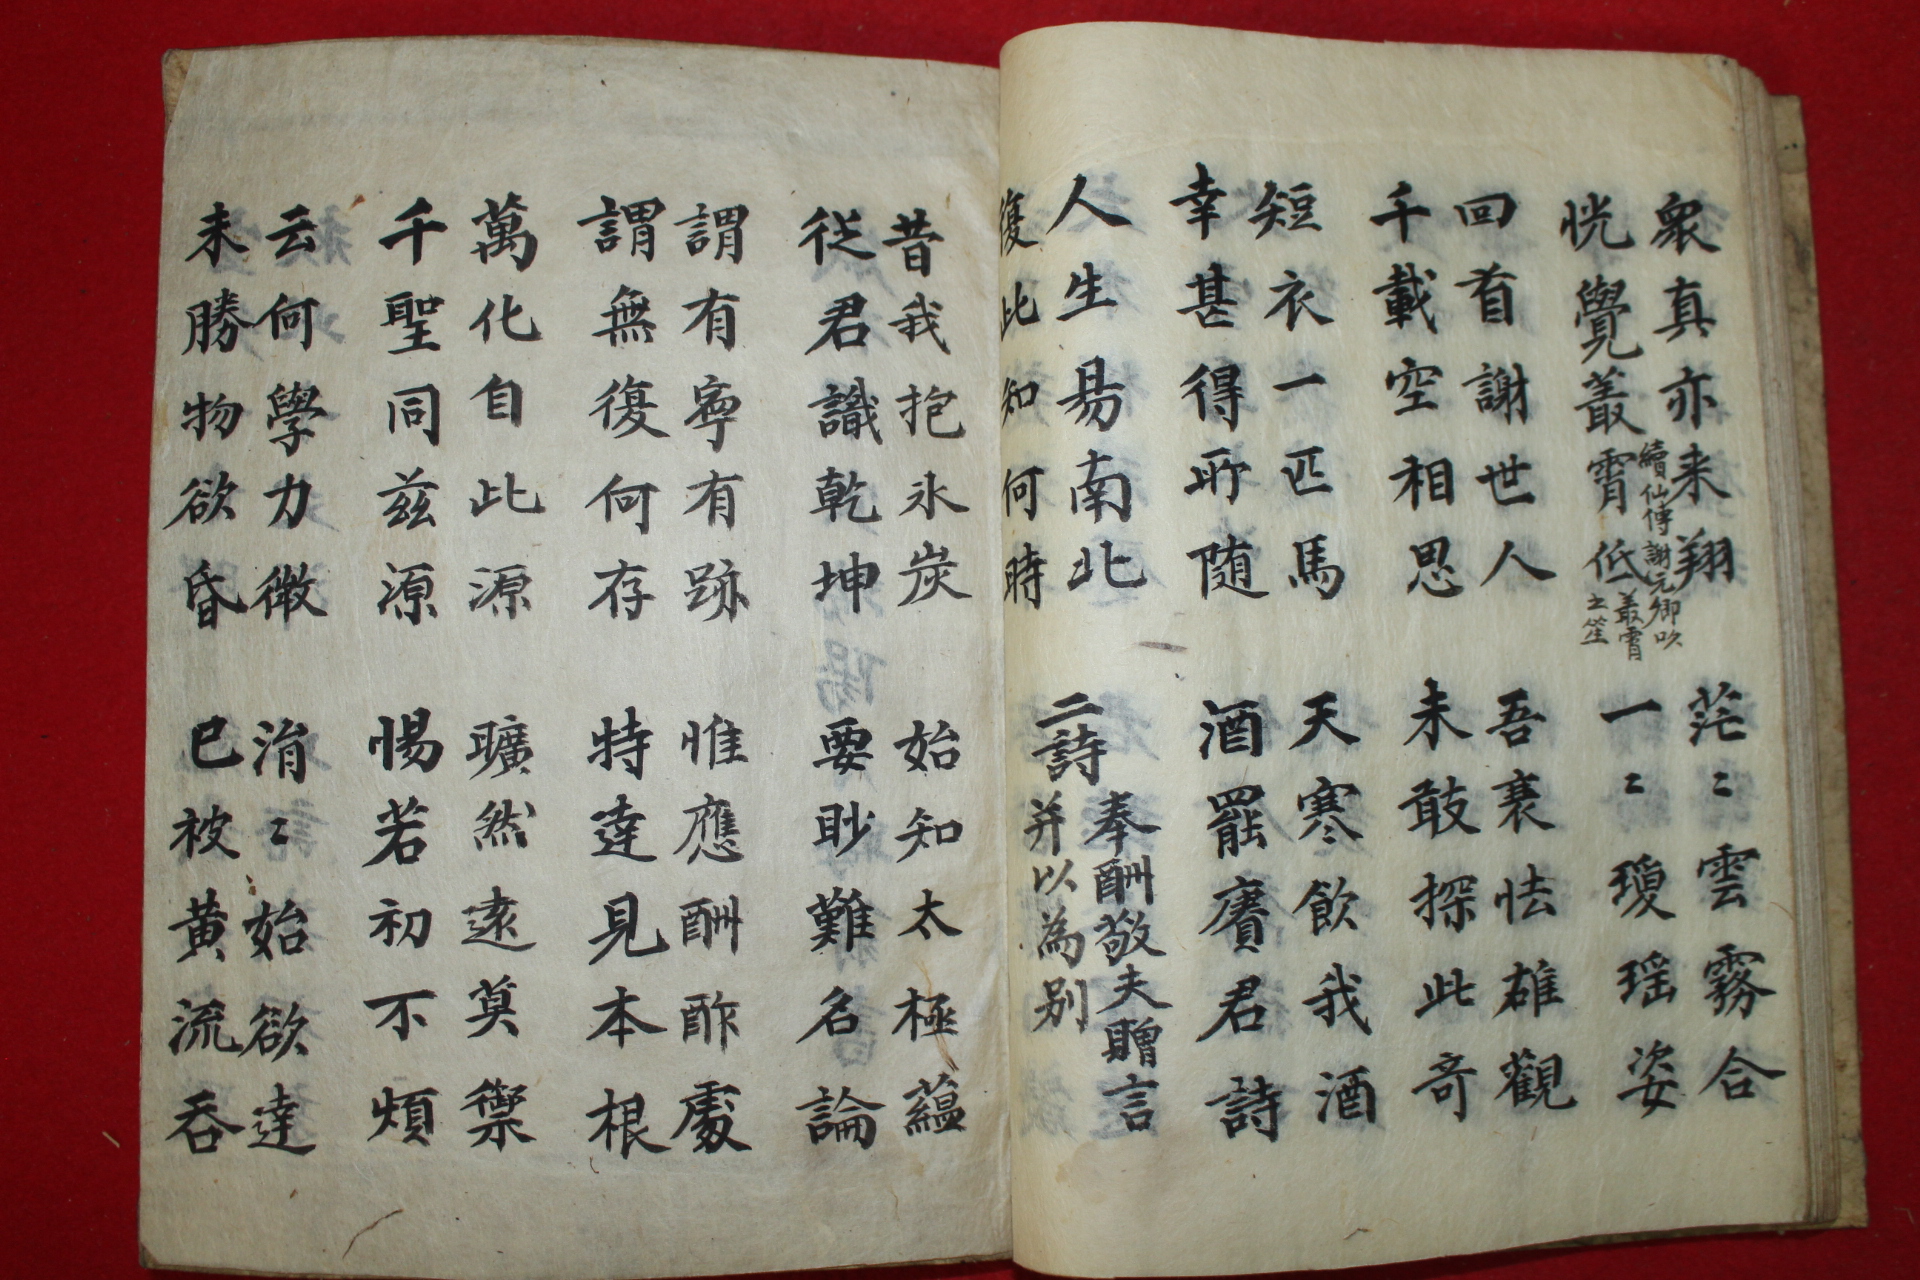 衆真亦来翔
茫〻雲霧合
恍覺叢霄低
續仙傳謝元卿吹
叢霄之笙
一〻瓊瑶姿
回首謝世人
吾衰怯雄觀
千載空相思
未敢探此奇
短衣一匹馬
天寒飲我酒
幸甚得所随
酒罷賡君詩
人生昜南北
復此知何時
二詩
奉酬敬夫贈言
并以為别
昔我抱氷炭
始知太極蘊
従君識乾坤
要眇難名論
謂有寧有跡
惟應酬酢處
謂無復何存
特達見本根
萬化自此源
曠然逺莫禦
千聖同兹源
惕若初不煩
云何學力微
涓〻始欲達
未勝物欲昏
已被黄流吞